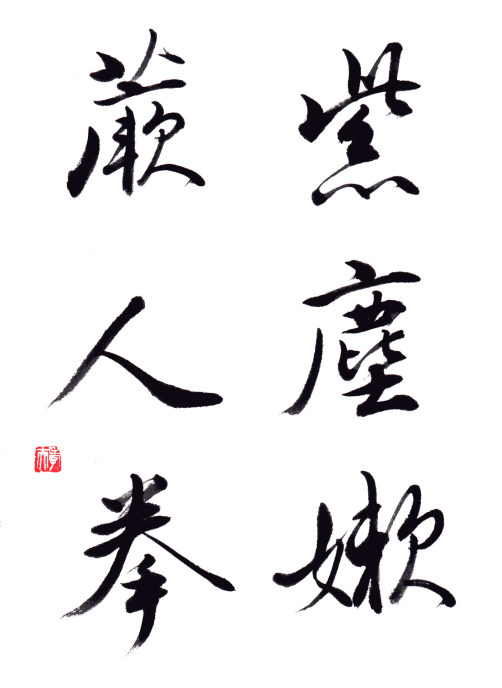 紫塵嫩
蕨人拳